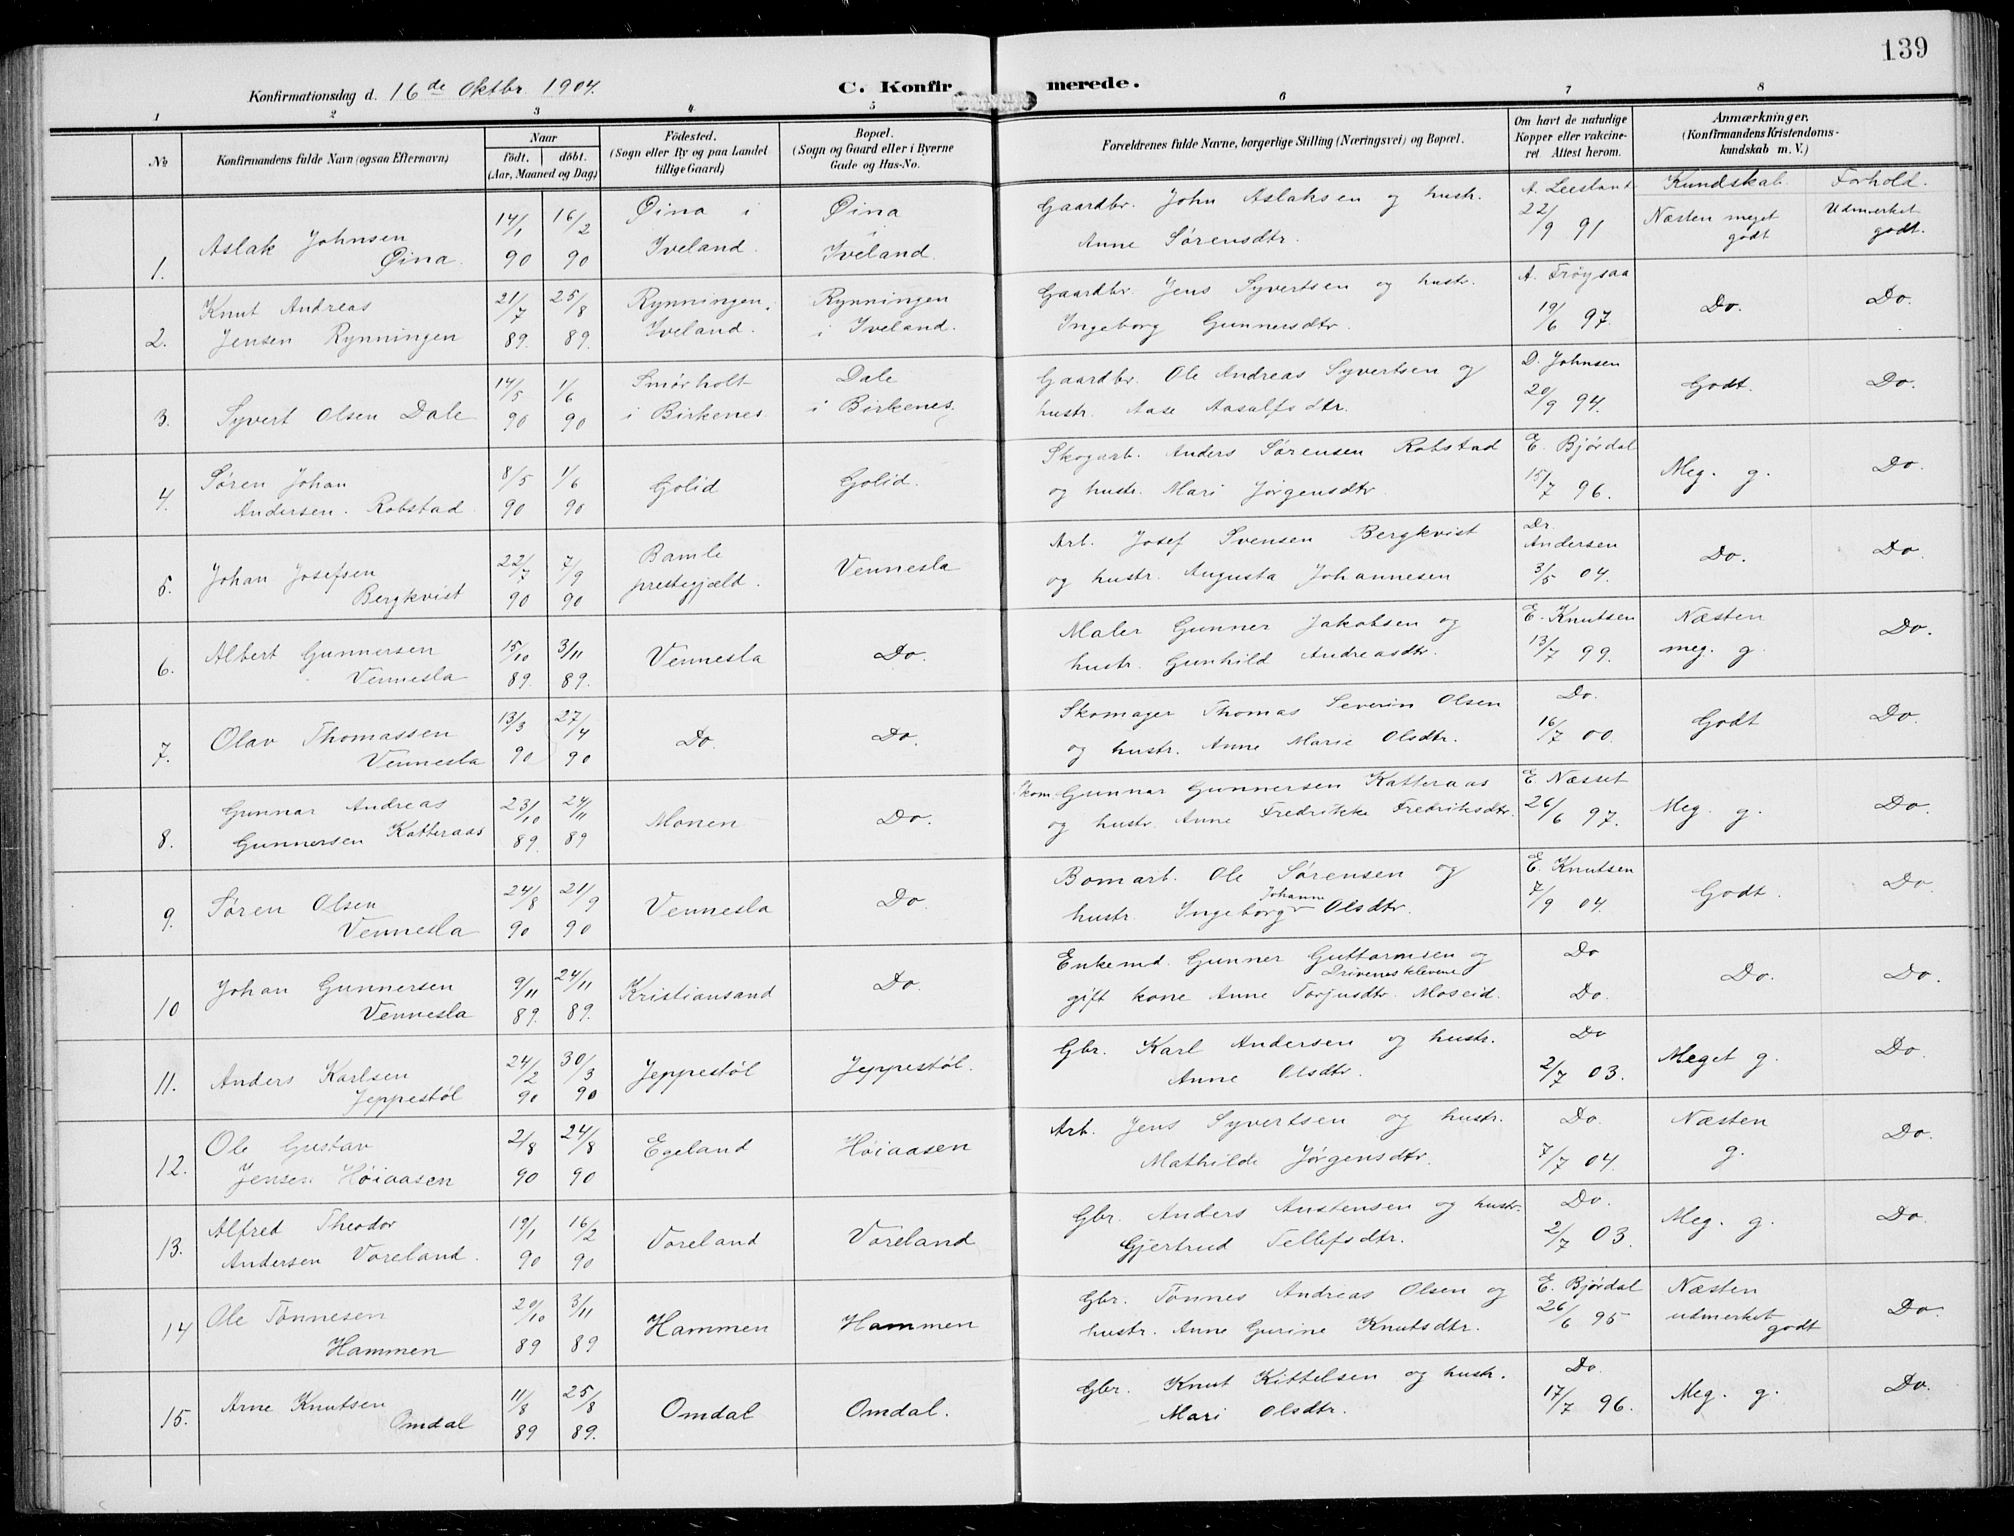 139
Konfirmationsdag d. 16de Oktbr. 1904.
C. Konfirmerede.
1 2 3 4 5 6 7 8
No
Konfirmandens fulde Navn (ogsaa Efternavn)
Naar
født. døbt.
(Aar, Maaned og Dag)
Fødested.
(Sogn eller By og paa Landet
tillige Gaard)
Bopæl.
(Sogn og Gaard eller i Byerne
Gade og Hus-No.
Forældrenes fulde Navne, borgerlige Stilling (Næringsvei) og Bopæl.
Om havt de naturlige
Kopper eller vakcine-
ret. Attest herom.
Anmærkninger.
(Konfirmandens Kristendoms-
kundskab m. V.)
Kundskab. Forhold.
1. Aslak Johnsen
Øina.
14/1 90 16/2 90
Øina i
Iveland.
Øina
i
Iveland.
Gaardbr. John Aslaksen og hustr.
Anne Sørensdtr.
A. Leesland
22/9 91
Næsten meget
godt
Udmerket
godt.
2. Knut Andreas
Jensen Rynningen
21/7 89. 25/8 89.
Rynningen i
Iveland.
Rynningen
i Iveland.
Gaardbr. Jens Syvertsen og hustr.
Ingeborg Gunnersdtr.
A. Frøysaa
19/6 97.
Do.
Do.
3. Syvert Olsen Dale
14/5 90 1/6 90
Smørholt
i Birkenes
Dale
i Birkenes.
Gaardbr. Ole Andreas Syvertsen og
hustr. Aase Aasulfsdtr.
D. Johnsen
20/9 94.
Godt.
Do.
4. Søren Johan
Andersen. Robstad.
8/5 90 1/6 90
Golid
Golid.
Skogarb. Anders Sørensen Robstad
og hustr. Mari Jørgensdtr.
E. Bjørdal
15/7 96.
Meg. g.
Do.
5. Johan Josefsen
Bergkvist
22/7 90 7/9 90
Bamle
prestegjæld.
Vennesla
Arb. Josef Svensen Bergkvist
og hustr. Augusta Johannesen
Dr.
Andersen
3/5 04.
Do.
Do.
6. Albert Gunnersen
Vennesla
15/10 89. 3/11 89.
Vennesla
Do.
Maler Gunner Jakobsen og
hustr. Gunhild Andreasdtr.
E. Knutsen
13/7 99.
Næsten
meg. g.
Do.
7. Olav Thomassen
Vennesla
13/3 90 27/4 90
Do.
Do.
Skomager Thomas Severin Olsen
og hustr. Anne Marie Olsdtr.
Do.
16/7 00.
Godt
Do.
8. Gunnar Andreas
Gunnersen Katteraas
23/10 89. 24/11 89
Monen
Do.
Skom. Gunnar Gunnersen Katteraas
og hustr. Anne Fredrikke Fredriksdtr.
E. Næsset
26/6 97.
Meg. g.
Do.
9. Søren Olsen
Vennesla
24/8 90 21/9 90
Vennesla
Do.
Bomarb. Ole Sørensen og
Johanne
hustr. Ingeborg Olsdtr.
E. Knutsen
7/9 04.
Godt.
Do.
10 Johan Gunnersen
Vennesla
9/11 89. 24/11 89.
Kristiansand
Do.
Enkemd. Gunner Guttormsen og
Drivenesklevene
gift kone Anne Torjusdtr. Moseid.
Do
Do.
Do.
Do.
11. Anders Karlsen
Jeppestøl
24/2 90 30/3 90
Jeppestøl
Jeppestøl.
Gbr. Karl Andersen og hustr.
Anne Olsdtr.
Do
2/7 03.
Meget g.
Do.
12. Ole Gustav
Jensen Høiaasen
2/8 90 24/8 90
Egeland
Høiaasen
Arb. Jens Syvertsen og hustr.
Mathilde Jørgensdtr.
Do.
7/7 04.
Næsten
g.
Do.
13. Alfred Theodor
Andersen Voreland.
19/1 90 16/2 90
Voreland
Voreland
Gbr. Anders Austensen og hustr.
Gjertrud Tellefsdtr.
Do.
2/7 03.
Meg. g.
Do.
14 Ole Tønnesen
Hammen
20/10 89 3/11 89
Hammen
Hammen
Gbr. Tønnes Andreas Olsen og
hustr. Anne Gurine Knutsdtr.
E. Bjørdal
26/6 95
Næsten
udmerket
godt
Do.
15. Arne Knutsen
Omdal
11/8 89 25/8 89.
Omdal
Omdal.
Gbr. Knut Kittelsen og hustr.
Mari Olsdtr.
Do.
17/7 96.
Meg. g.
Do.